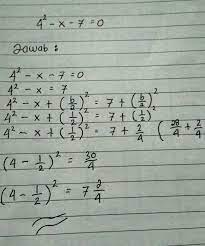 4² - x - 7 = 0
Jawab :
4² - x - 7 = 0
4² - x = 7
4² - x + (b/2)² = 7 + (b/2)²
4² - x + (1/2)² = 7 + (1/2)²
4² - x + (1/2)² = 7 + 2/4 (28/4 + 2/4
(4 - 1/2)² = 30/4
(4 - 1/2)² = 7 2/4